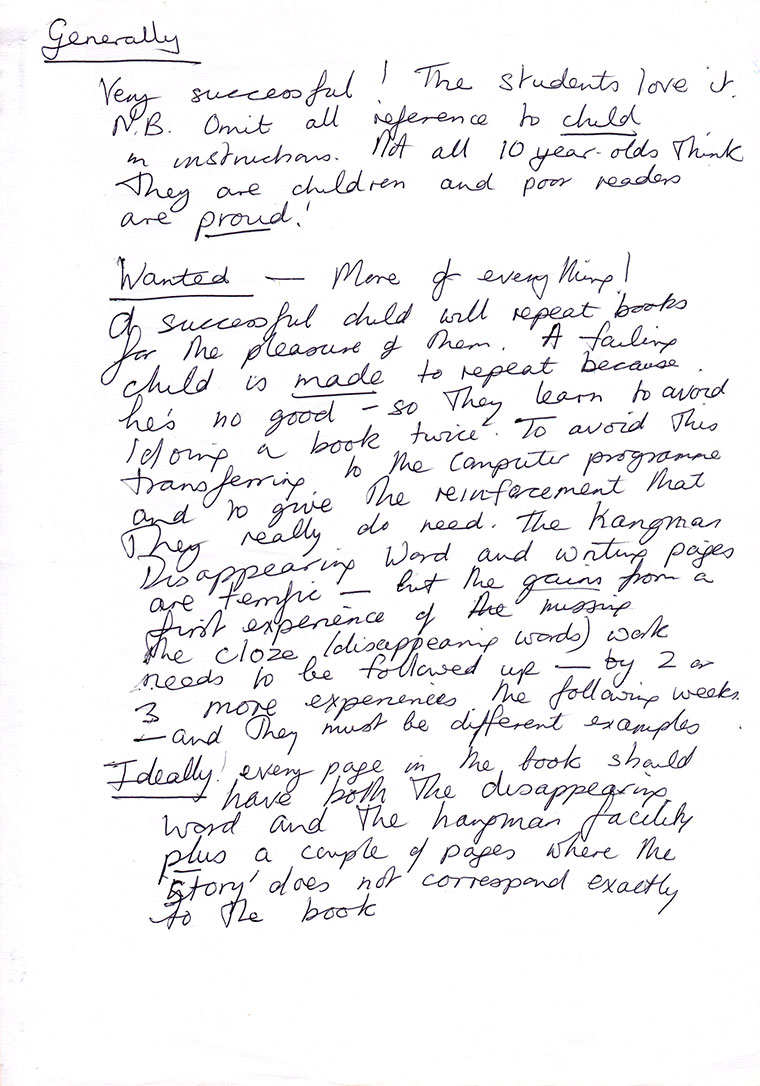 Generally
Very successful! The students love it.
N.B. Omit all reference to child
in instructions. Not all 10 year-olds think
They are children and poor readers
are proud!
Wanted — More of everything!
A successful child will repeat books
for the pleasure of them. A failing
child is made to repeat because
he's no good – so They learn to avoid
doing a book twice. To avoid This
transferring to the computer programme
and to give the reinforcement that
They really do need. The Hangman
Disappearing Word and writing pages
are terrific — but the gains from a
first experience of the missing
the cloze (disappearing words) work
needs to be followed up — by 2 or
3 more experiences the following weeks.
— and They must be different examples.
Ideally! every page in the book should
have both The disappearing
word and The hangman facility
plus a couple of pages where the
'story' does not correspond exactly
to The book